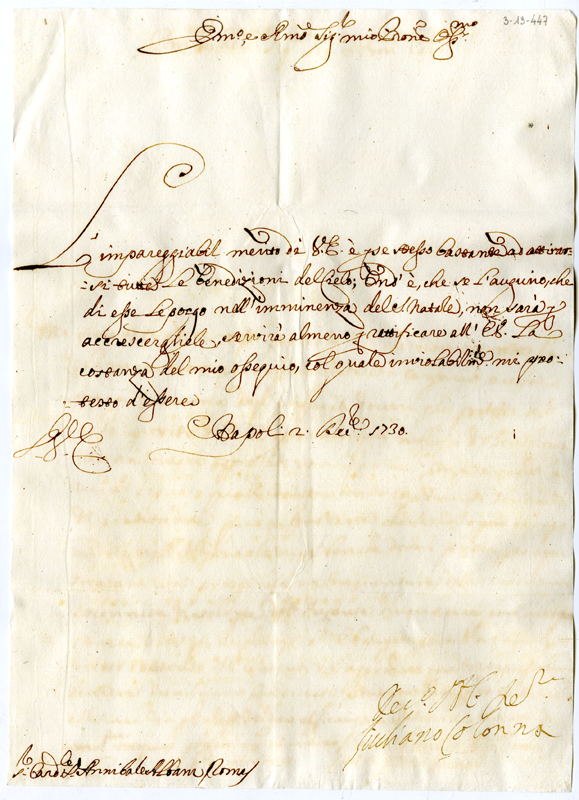 3-13-447
Em.o e R.mo Sig.r mio Padrone Col.mo
L'impareggiabil merito di V.E. è per se stesso bastante ad attirar-
si tutte le benedizioni del Cielo; Ond'è, che se l'augurio, che
di esse Le porgo nell'imminenza del S. Natale, non sarà p
accrescergliele, servirà almeno p rattificare all'E.V. La
costanza del mio ossequio, col quale inviolabilm.te mi pro-
testo d'essere
Di V.E.
Napoli 2. Xbre 1730.
Giuliano Colonna
S.r Card.le Annibale Albani Roma